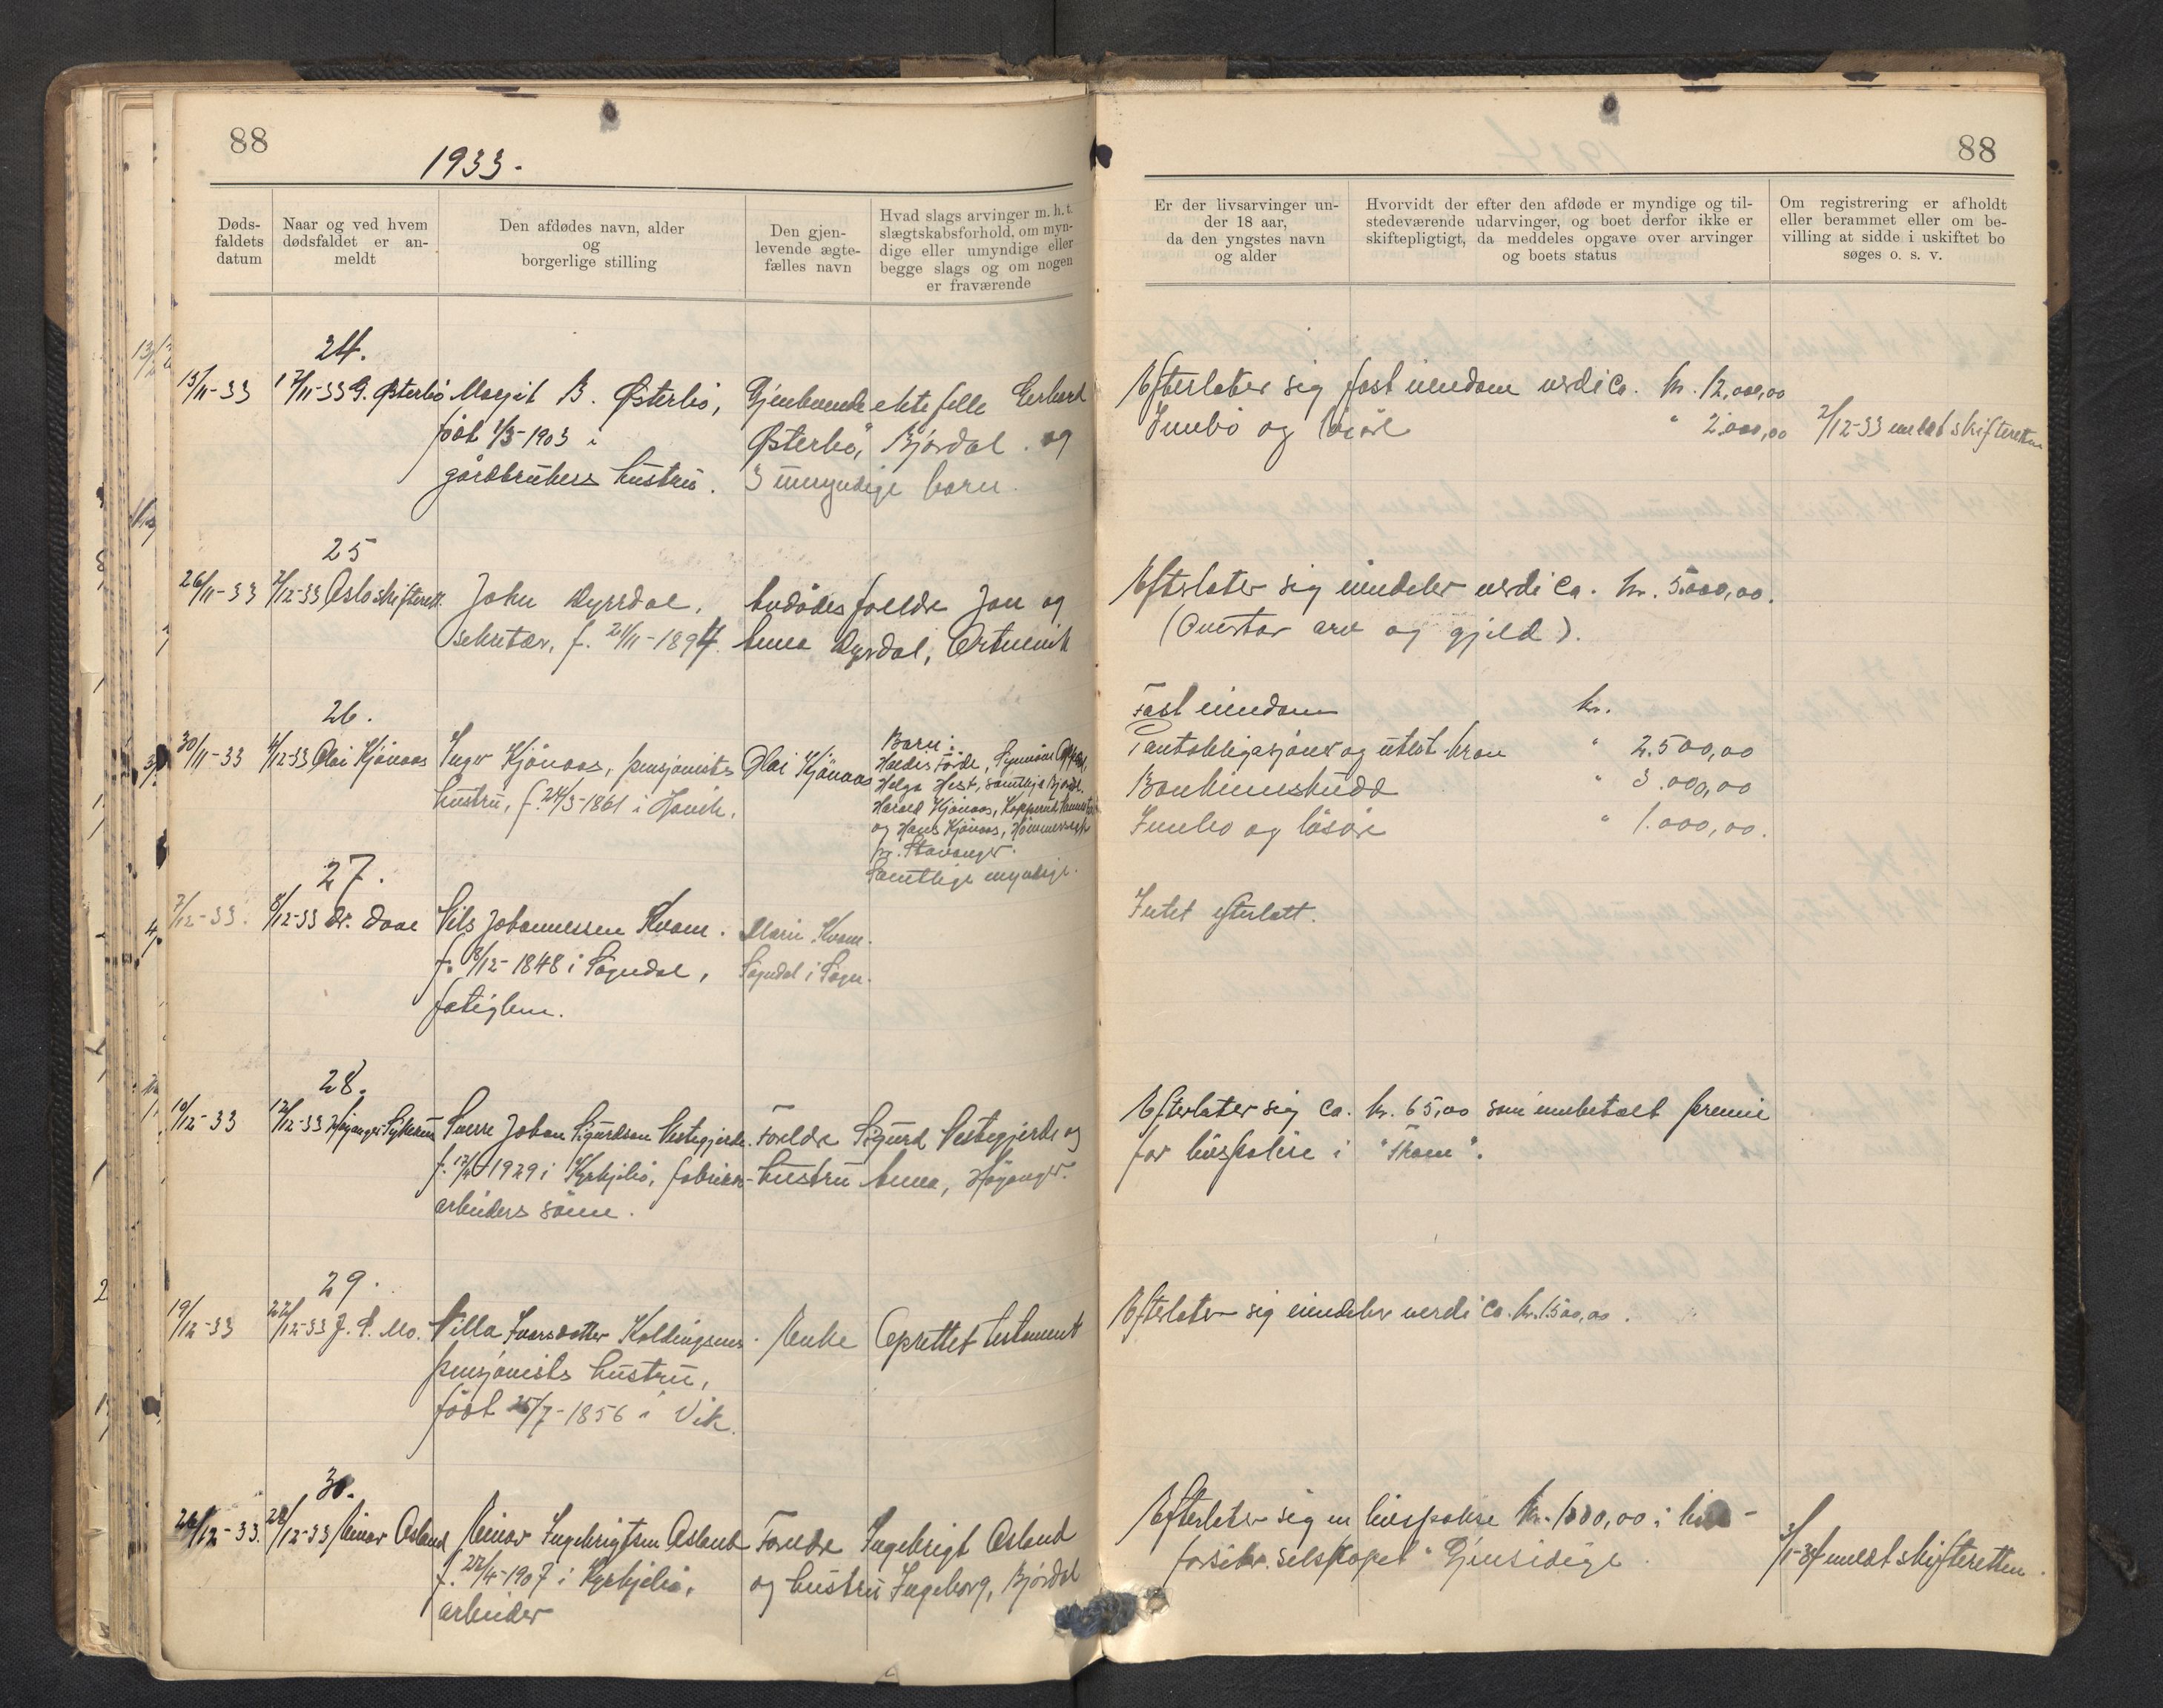 88
1933.
Døds-
faldets
datum
Naar og ved hvem
dødsfaldet er an-
meldt
Den afdødes navn, alder
og
borgerlige stilling
Den gjen-
levende ægte-
fælles navn
Hvad slags arvinger m. h. t.
slægtskabsforhold, om myn-
dige eller umyndige eller
begge slags og om nogen
er fraværende
24.
13/11-33 17/11-33 G. Østerbø Margit B. Østerbø, Gjenlevende ektefelle Gerhard
født 1/3-1903 i Østerbø, Bjordal. og
gårdbrukers hustru. 3 umyndige barn.
25
26/11-33 7/12-33 Oslo skifterett. John Dyrdal, Avdødes foeldre Jon og
sekretær, f. 21/11-1894. Anna Dyrdal, Ortnevik
26.
30/11-33 4/12-33 Olai Kjönaas Inger Kjönaas, pensjonists Olai Kjönaas
hustru, f. 24/3-1861 i Høvik.
Barn:
Helga Hest, samtlige Bjordal.
Harald Kjönaas,
og Hans Kjönaas,
pr. Stavanger.
Samtlige myndige.
27.
7/12-33. 8/12-33 dr. Daae Nils Johannessen Kvam. Marie Kvam.
f. 8/12-1848 i Sogndal, Sogndal i Sogn.
fatiglem.
28.
10/12-33 12/12-33 Höyanger Sykehus Sverre Johan Sigurdson Vestegjerde. Foreldre Sigurd Vestegjerde og
f. 12/4-1929 i Kyrkjebø, fabrikk- hustru Anna, Höyanger.
arbeiders sönn.
29.
19/12-33 22/12-33 J. S. Mo. Milla Ivarsdatter Koldingsnes. Enke Oprettet testament
pensjonists hustru,
född 25/7-1856 i Vik.
30.
26/12-33. 28/12-33 Einar Åsland Einar Ingebrigtsen Åsland Foreldre Ingebrigt Åsland
f. 22/4-1907 i Kyrkjebø, og hustru Ingeborg, Bjordal
arbeider
88
Er der livsarvinger un-
der 18 aar,
da den yngstes navn
og alder
Hvorvidt der efter den afdøde er myndige og til-
stedeværende udarvinger, og boet derfor ikke er
skiftepligtigt, da meddeles opgave over arvinger
og boets status
Om registrering er afholdt
eller berammet eller om be-
villing at sidde i uskiftet bo
søges o. s. v.
Efterlater sig fast eiendom verdi ca. kr. 12,000,00
Innbo og løsøre " 2.000,00 2/12-33 meldt skifteretten
Efterlater sig eiendeler verdi ca. kr. 5.000,00.
(Overtar arv og gjeld).
Fast eiendom kr.
Pantobligasjoner og utest. krav " 2.500,00
Bankinnskudd " 3.000,00
Innbo og løsøre " 1.000,00.
Intet efterlatt.
Efterlater sig ca. kr. 65,00 som innbetalt premie
for livspolise i "Fram".
Efterlater sig eiendeler verdi ca. kr. 1500,00.
Efterlater sig en livspolise kr. 1000,00 i livs-
forsikr. selskapet "Gjensidige
3/1-34 meldt skifteretten.